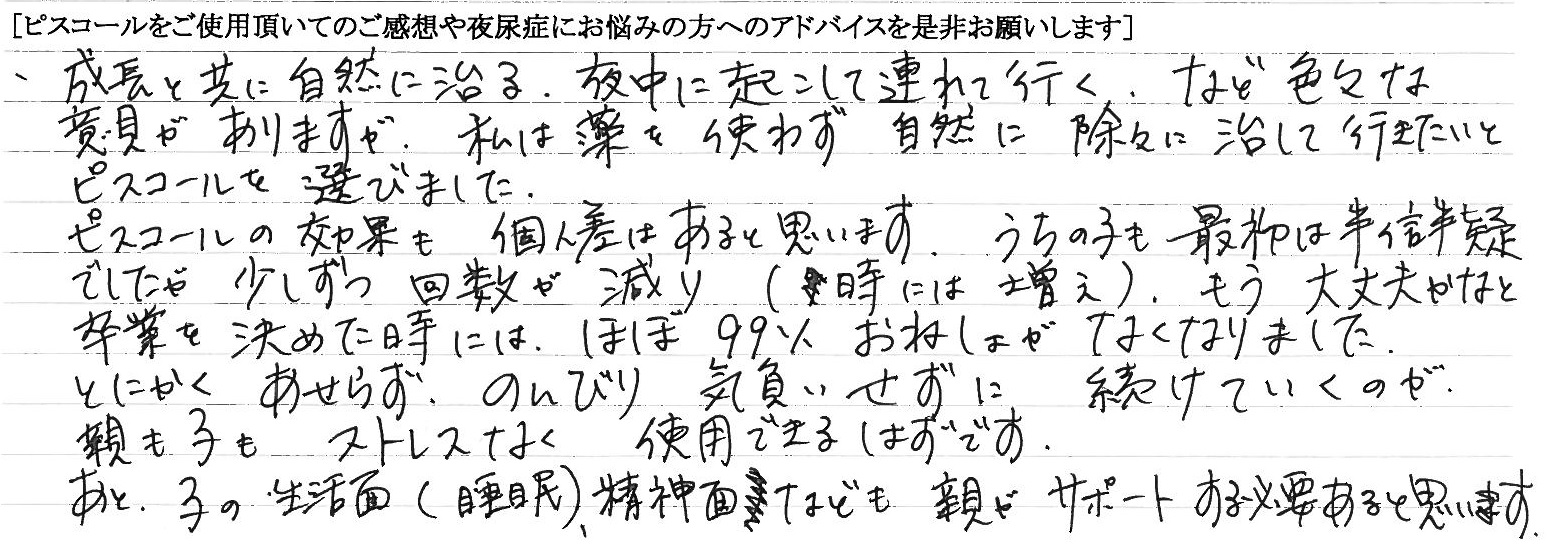 [ピスコールをご使用頂いてのご感想や夜尿症にお悩みの方へのアドバイスを是非お願いします]
、成長と共に自然に治る．夜中に起こして連れて行く．など色々な
意見がありますが．私は薬を使わず自然に除々に治して行きたいと
ピスコールを選びました．
ピスコールの効果も個人差はあると思います．うちの子も最初は半信半疑
でしたが少しずつ回数が減り（時には増え）．もう大丈夫かなと
卒業を決めた時には．ほぼ99％おねしょがなくなりました．
とにかくあせらず．のんびり気負いせずに続けていくのが．
親も子もストレスなく使用できるはずです．
あと．子の生活面（睡眠）、精神面なども親がサポートする必要あると思います．